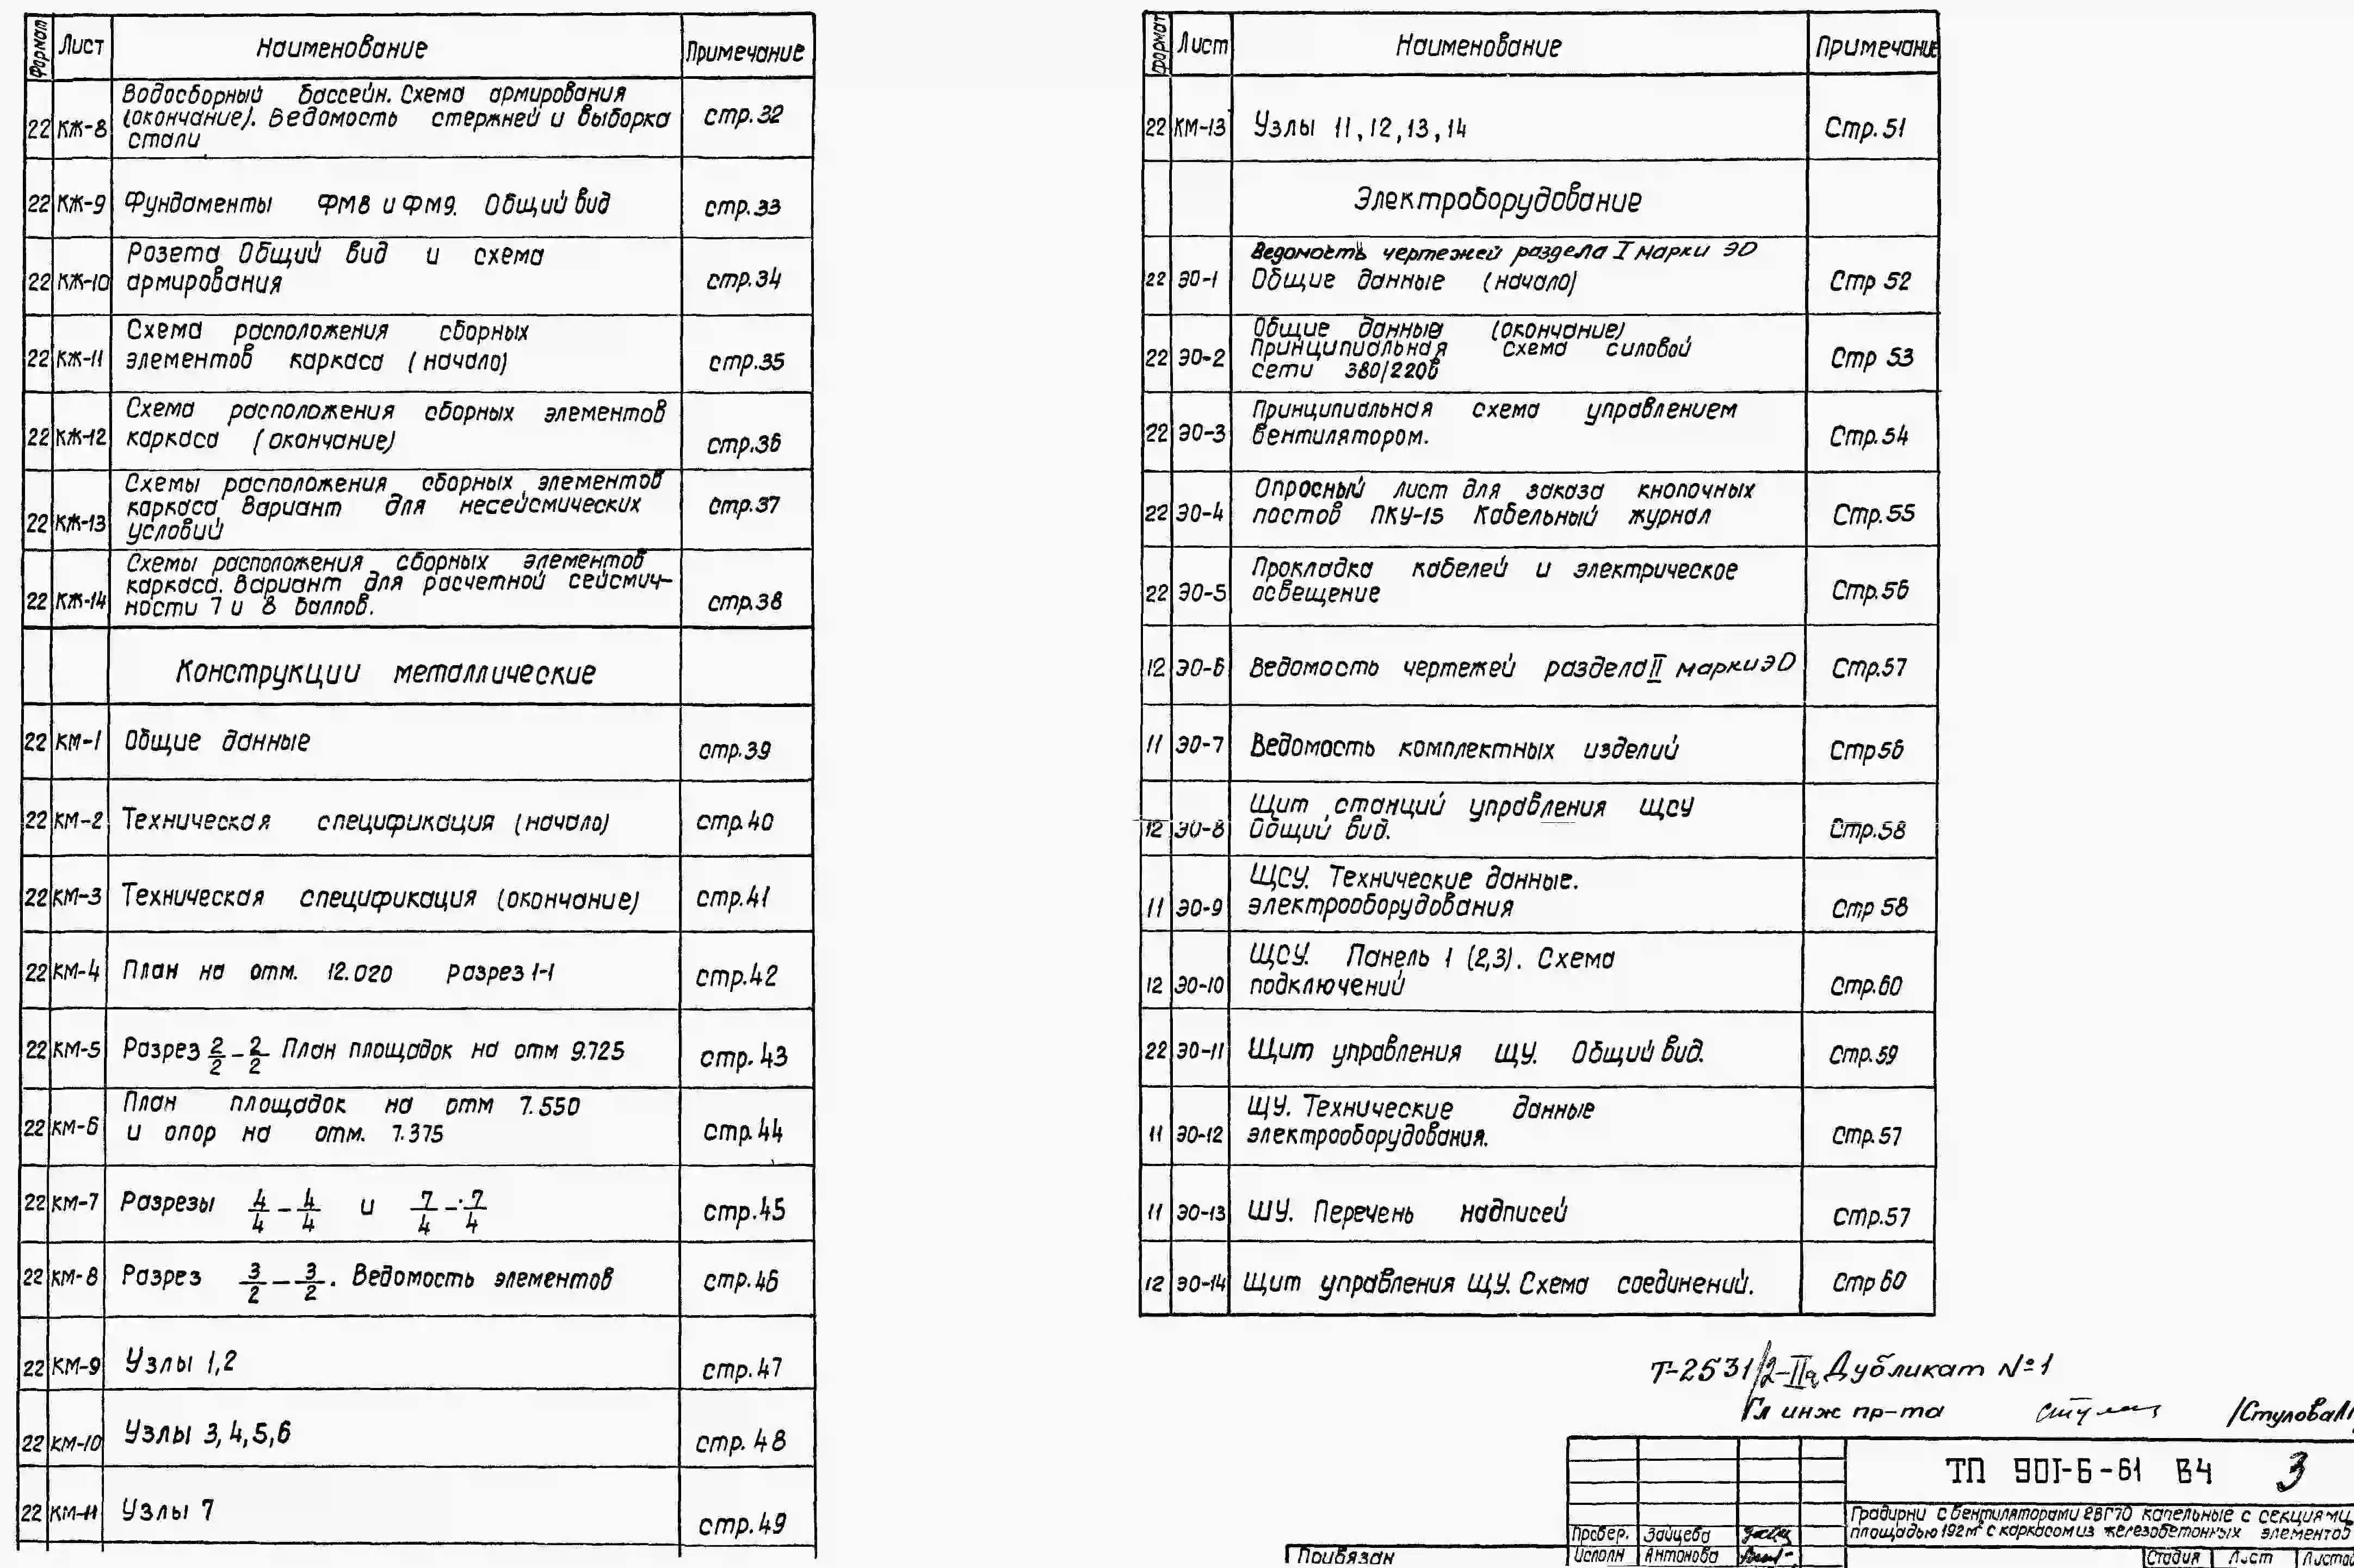 Формат Лист Наименование Примечание
22 КЖ-8 Водосборный бассейн. Схема армирования
(окончание). Ведомость стержней и выборка
стали стр.32
22 КЖ-9 Фундаменты ФМ8 и ФМ9. Общий вид стр.33
22 КЖ-10 Розета Общий вид и схема
армирования стр.34
22 КЖ-11 Схема расположения сборных
элементов каркаса (начало) стр.35
22 КЖ-12 Схема расположения сборных элементов
каркаса (окончание) стр.36
22 КЖ-13 Схемы расположения сборных элементов
каркаса Вариант для несейсмических
условий стр.37
22 КЖ-14 Схемы расположения сборных элементов
каркаса. Вариант для расчетной сейсмич-
ности 7 и 8 баллов. стр.38
Конструкции металлические
22 КМ-1 Общие данные стр.39
22 КМ-2 Техническая спецификация (начало) стр.40
22 КМ-3 Техническая спецификация (окончание) стр.41
22 КМ-4 План на отм. 12.020 разрез 1-1 стр.42
22 КМ-5 Разрез 2/2 - 2/2 План площадок на отм 9.725 стр.43
22 КМ-6 План площадок на отм 7.550
и опор на отм. 7.375 стр.44
22 КМ-7 Разрезы 4/4 - 4/4 и 7/4 - 7/4 стр.45
22 КМ-8 Разрез 3/2 - 3/2. Ведомость элементов стр.46
22 КМ-9 Узлы 1,2 стр.47
22 КМ-10 Узлы 3,4,5,6 стр.48
22 КМ-11 Узлы 7 стр.49
Формат Лист Наименование Примечание
22 КМ-13 Узлы 11,12,13,14 Стр.51
Электроборудование
Ведомость чертежей раздела I марки ЭО
22 ЭО-1 Общие данные (начало) Стр 52
22 ЭО-2 Общие данные (окончание)
Принципиальная схема силовой
сети 380/220в Стр 53
22 ЭО-3 Принципиальная схема управлением
вентилятором. Стр.54
22 ЭО-4 Опросный лист для заказа кнопочных
постов ПКУ-15 Кабельный журнал Стр.55
22 ЭО-5 Прокладка кабелей и электрическое
освещение Стр.56
12 ЭО-6 Ведомость чертежей раздела II марки ЭО Стр.57
11 ЭО-7 Ведомость комплектных изделий Стр56
12 ЭО-8 Щит станций управления ЩСУ
Общий вид. Стр.58
11 ЭО-9 ЩСУ. Технические данные.
электрооборудования Стр 58
12 ЭО-10 ЩСУ. Панель 1 (2,3). Схема
подключений Стр.60
22 ЭО-11 Щит управления ЩУ. Общий вид. Стр.59
11 ЭО-12 ЩУ. Технические данные
электрооборудования. Стр.57
11 ЭО-13 ШУ. Перечень надписей Стр.57
12 ЭО-14 Щит управления ЩУ. Схема соединений. Стр 60
Т-2531/2-IIа Дубликат №1
Гл инж пр-та /Стулова/
ТП 901-6-61 ВЧ 3
Градирни с вентиляторами 2ВГ70 капельные с секциями
площадью 192м² с каркасом из железобетонных элементов
Провер. Зайцева
Исполн Антонова
Привязан
Стадия Лист Листов